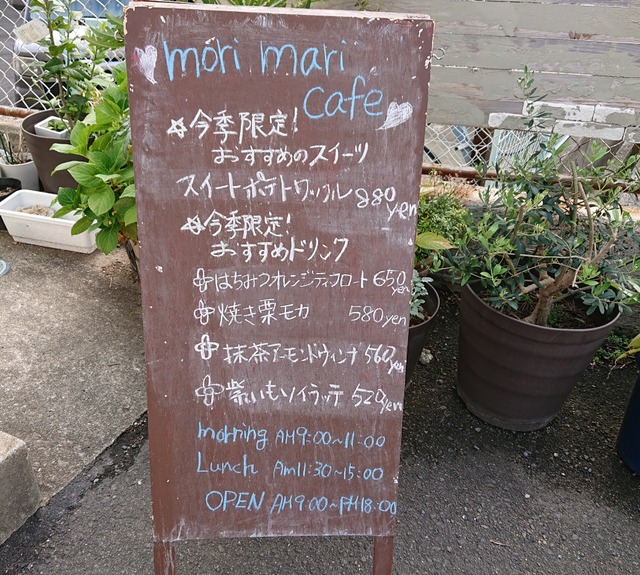 mori mari
cafe
今季限定!
おすすめのスイーツ
スイートポテトワッフル 880yen
今季限定!
おすすめドリンク
はちみつオレンジティフロート 650yen
焼き栗モカ 580yen
抹茶アーモンドウィンナ 560yen
紫いもソイラッテ 520yen
morning AM9:00~11:00
Lunch Am11:30~15:00
OPEN AM9:00~PM18:00